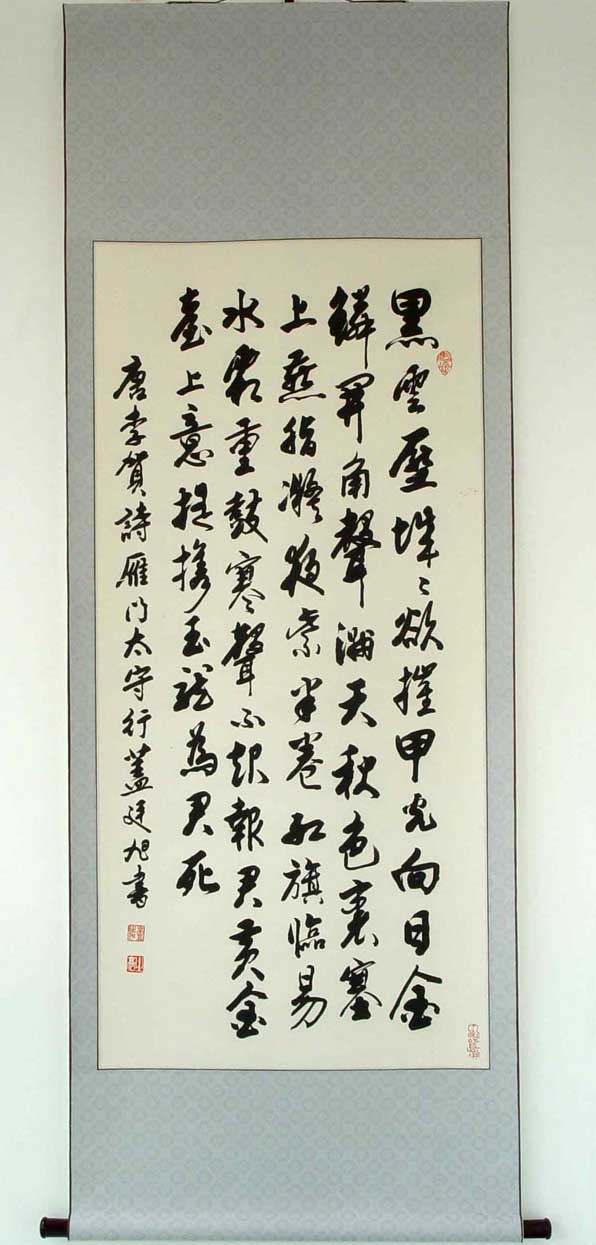 黑雲壓城〻欲摧甲光向日金
鱗開角聲滿天秋色裏塞
上燕脂凝夜紫半卷紅旗臨易
水霜重鼓寒聲不起報君黃金
臺上意提攜玉龍為君死
唐李賀詩雁门太守行蓋廷旭書